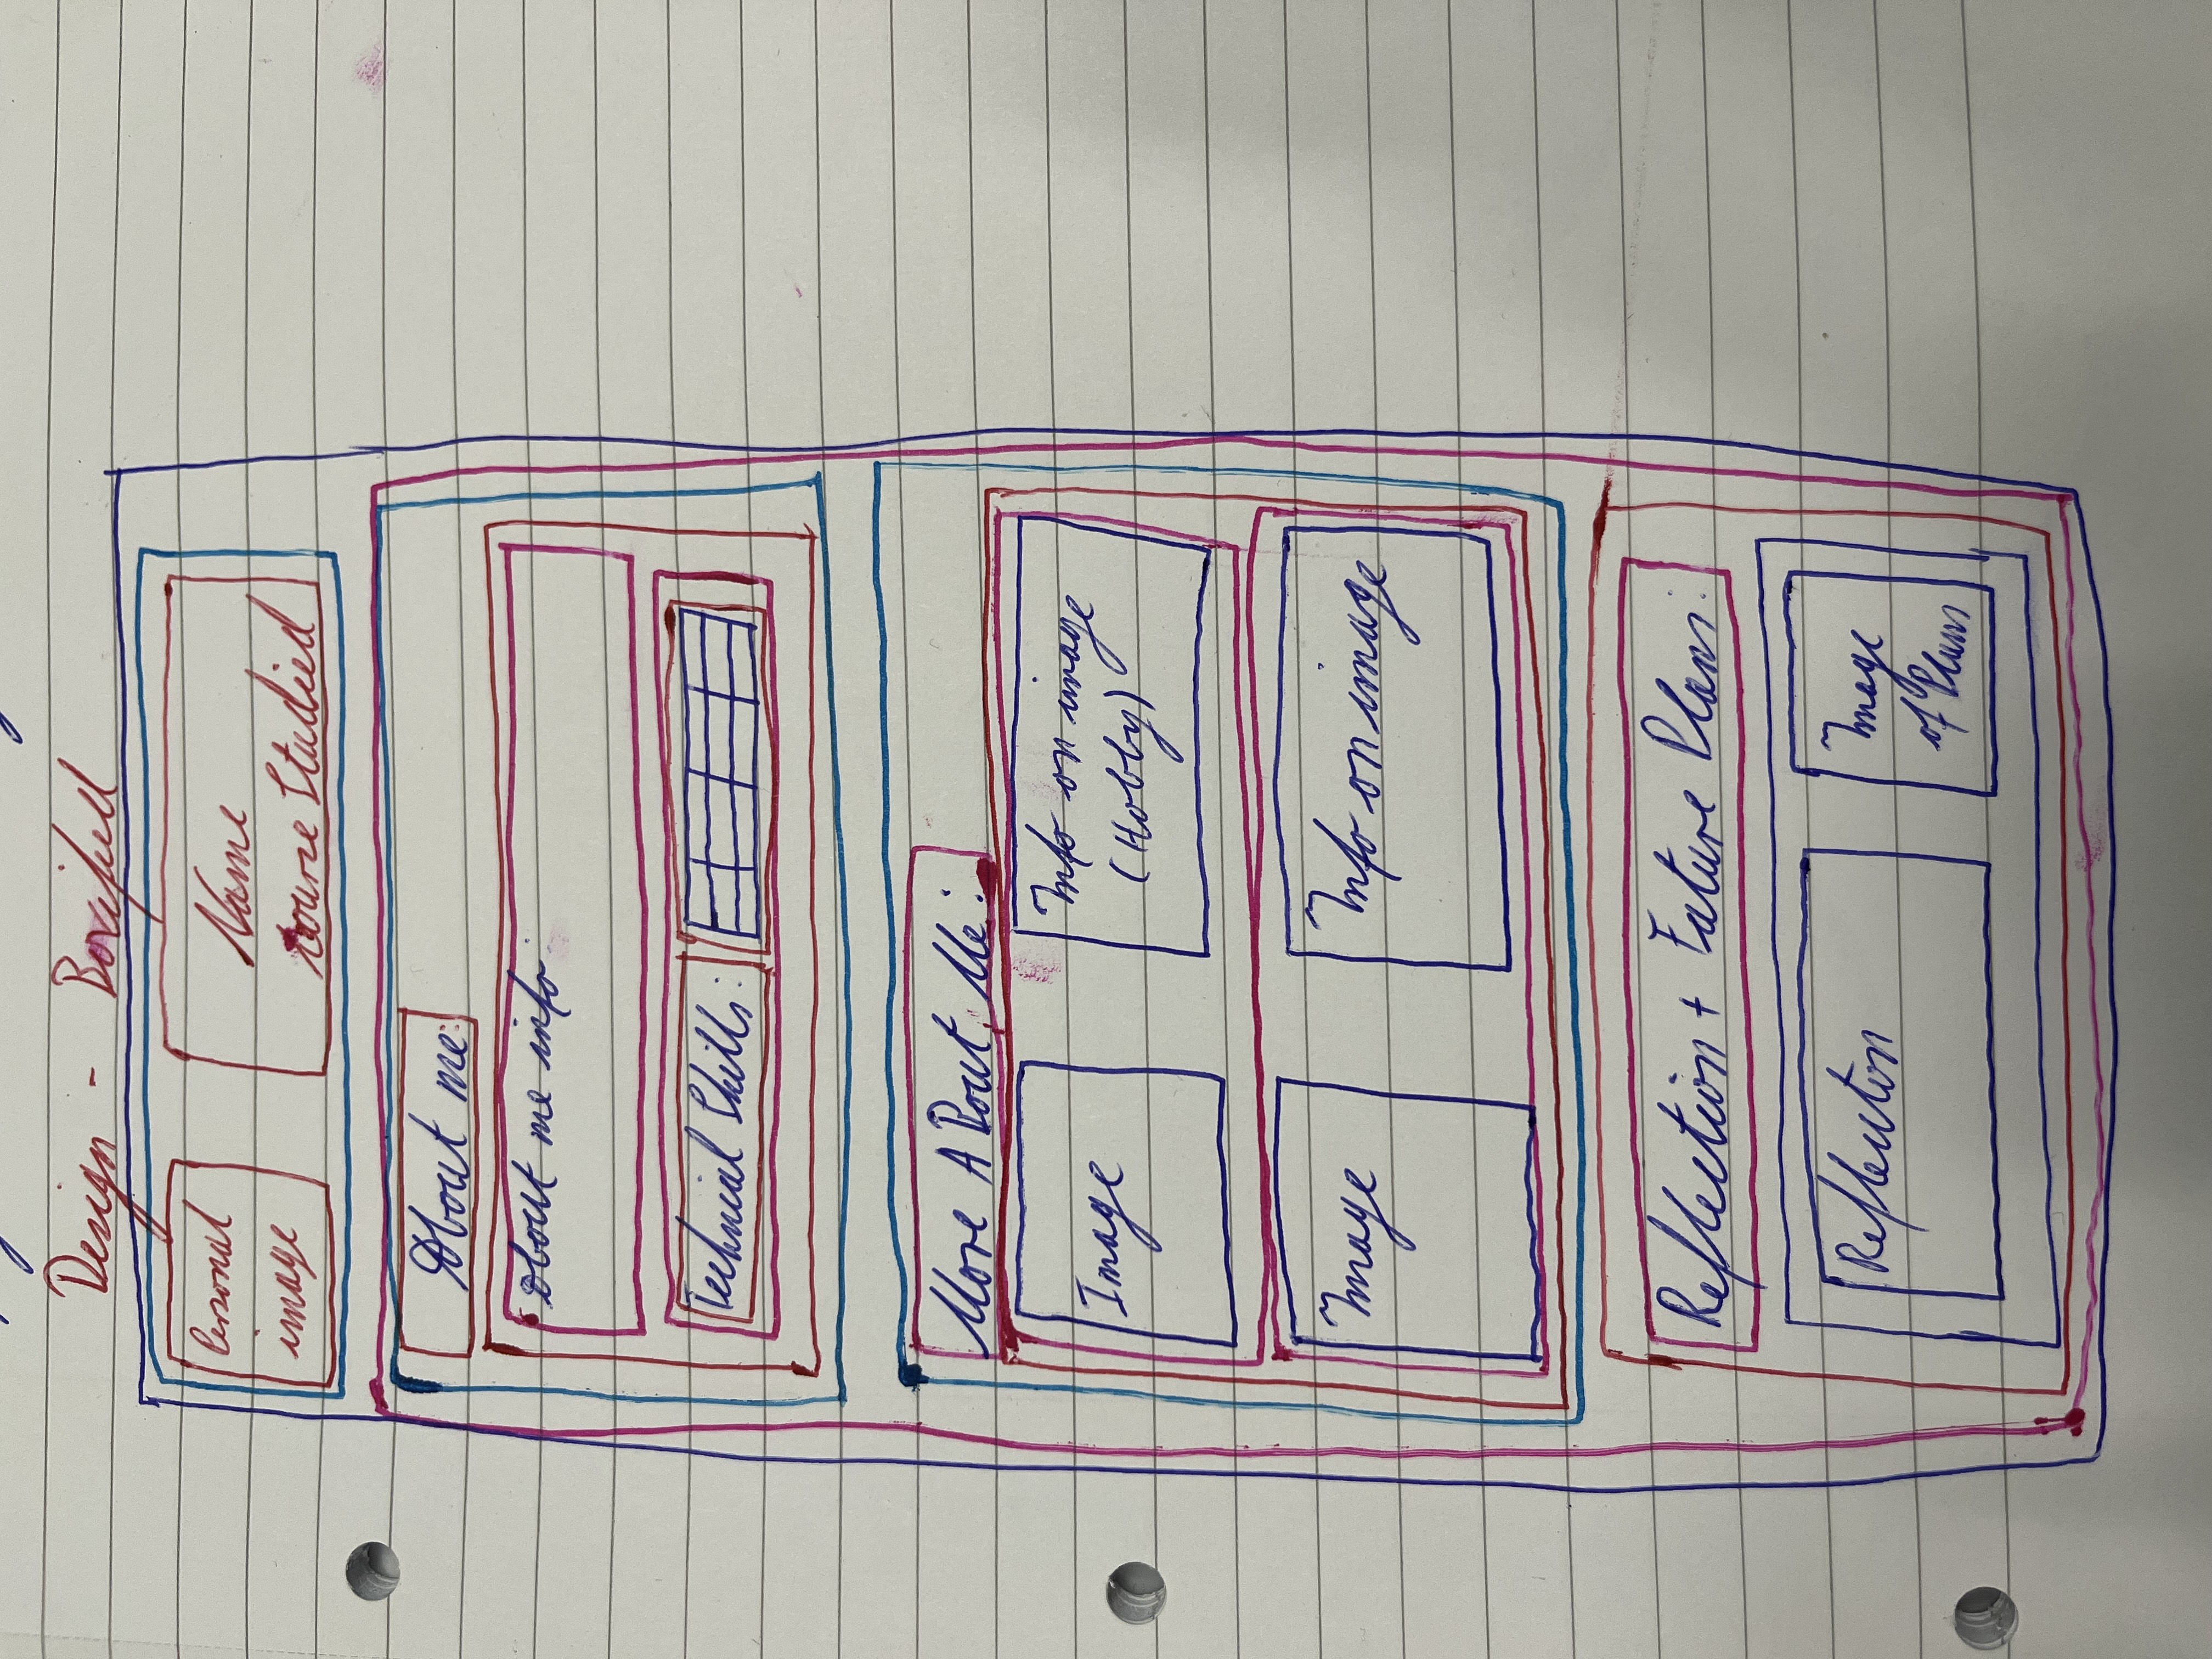 Design - Boxified
Personal
image
Name
Course Studied
About me:
About me info:
Technical Skills:
More ABout Me:
Image
Info on image
(Hobby)
Image
Info on image
Reflection + Future Plans:
Reflection
Image
of Plans